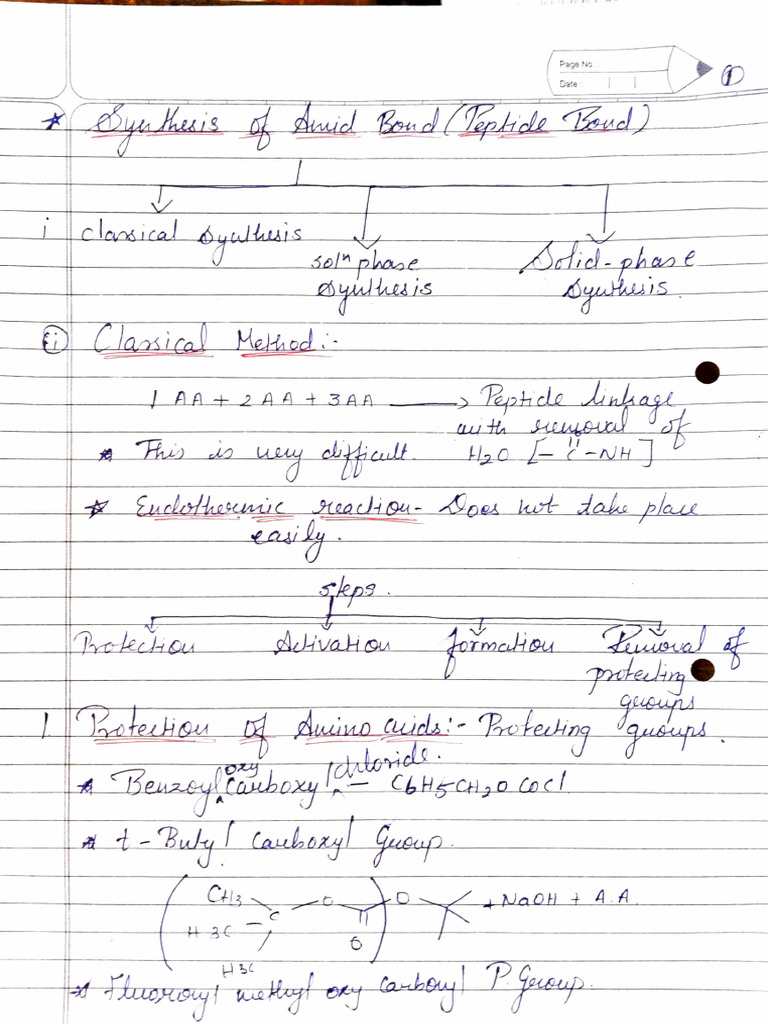 Page No.
Date
①
* Synthesis of Amid Bond (Peptide Bond)
i classical synthesis
solⁿ phase synthesis
Solid-phase synthesis
(i) Classical Method:-
1 AA + 2 AA + 3AA → Peptide linkage
with removal of
* This is very difficult. H2O [-C-NH]
* Endothermic reaction- Does not take place
easily.
steps.
Protection Activation formation Removal of
protecting
groups
1 Protection of Amino acids:- Protecting groups.
* Benzoyl oxy Carboxyl chloride. - C6H5CH2OCOCl
* t-Butyl Carboxyl Group.
CH3 C O O + NaOH + A.A.
H3C O
H3C
* Fluoronyl methyl oxy carbonyl P. Group.